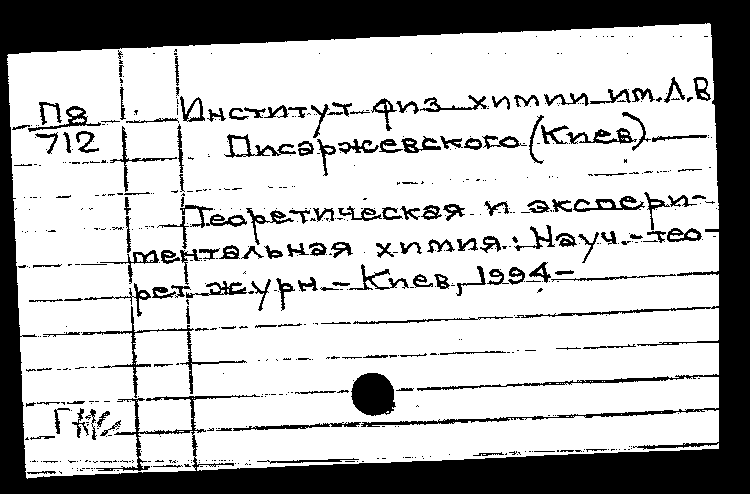 П8
712
Институт физ. химии им. Л.В.
Писаржевского (Киев).
Теоретическая и экспери-
ментальная химия: Науч.-тео-
рет. журн. – Киев, 1994–